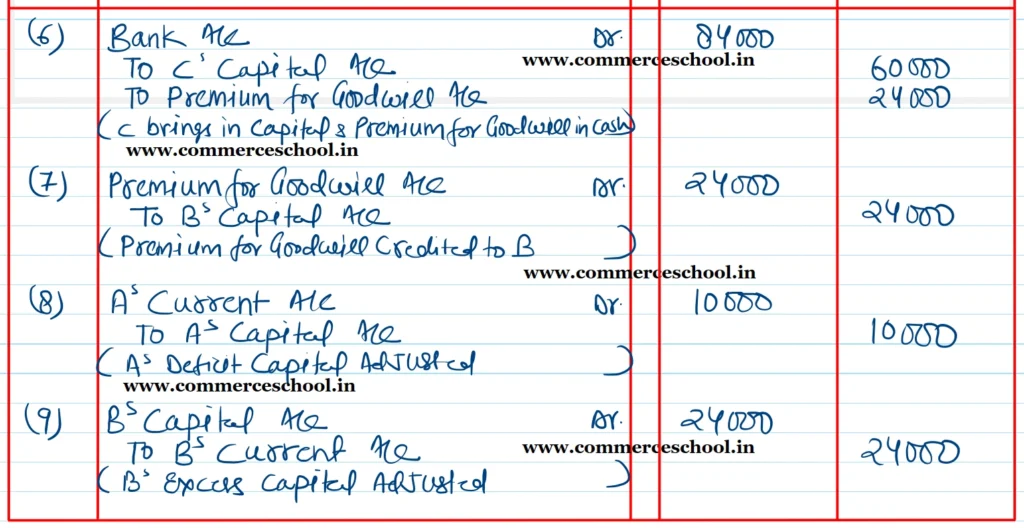 (6) Bank A/c Dr. 84000
www.commerceschool.in
To C's Capital A/c 60000
To Premium for Goodwill A/c 24000
(C brings in Capital & Premium for Goodwill in Cash)
www.commerceschool.in
(7) Premium for Goodwill A/c Dr. 24000
To B's Capital A/c 24000
(Premium for Goodwill Credited to B)
www.commerceschool.in
(8) A's Current A/c Dr. 10000
To A's Capital A/c 10000
(A's Deficit Capital Adjusted)
www.commerceschool.in
(9) B's Capital A/c Dr. 24000
www.commerceschool.in
To B's Current A/c 24000
(B's Excess Capital Adjusted)